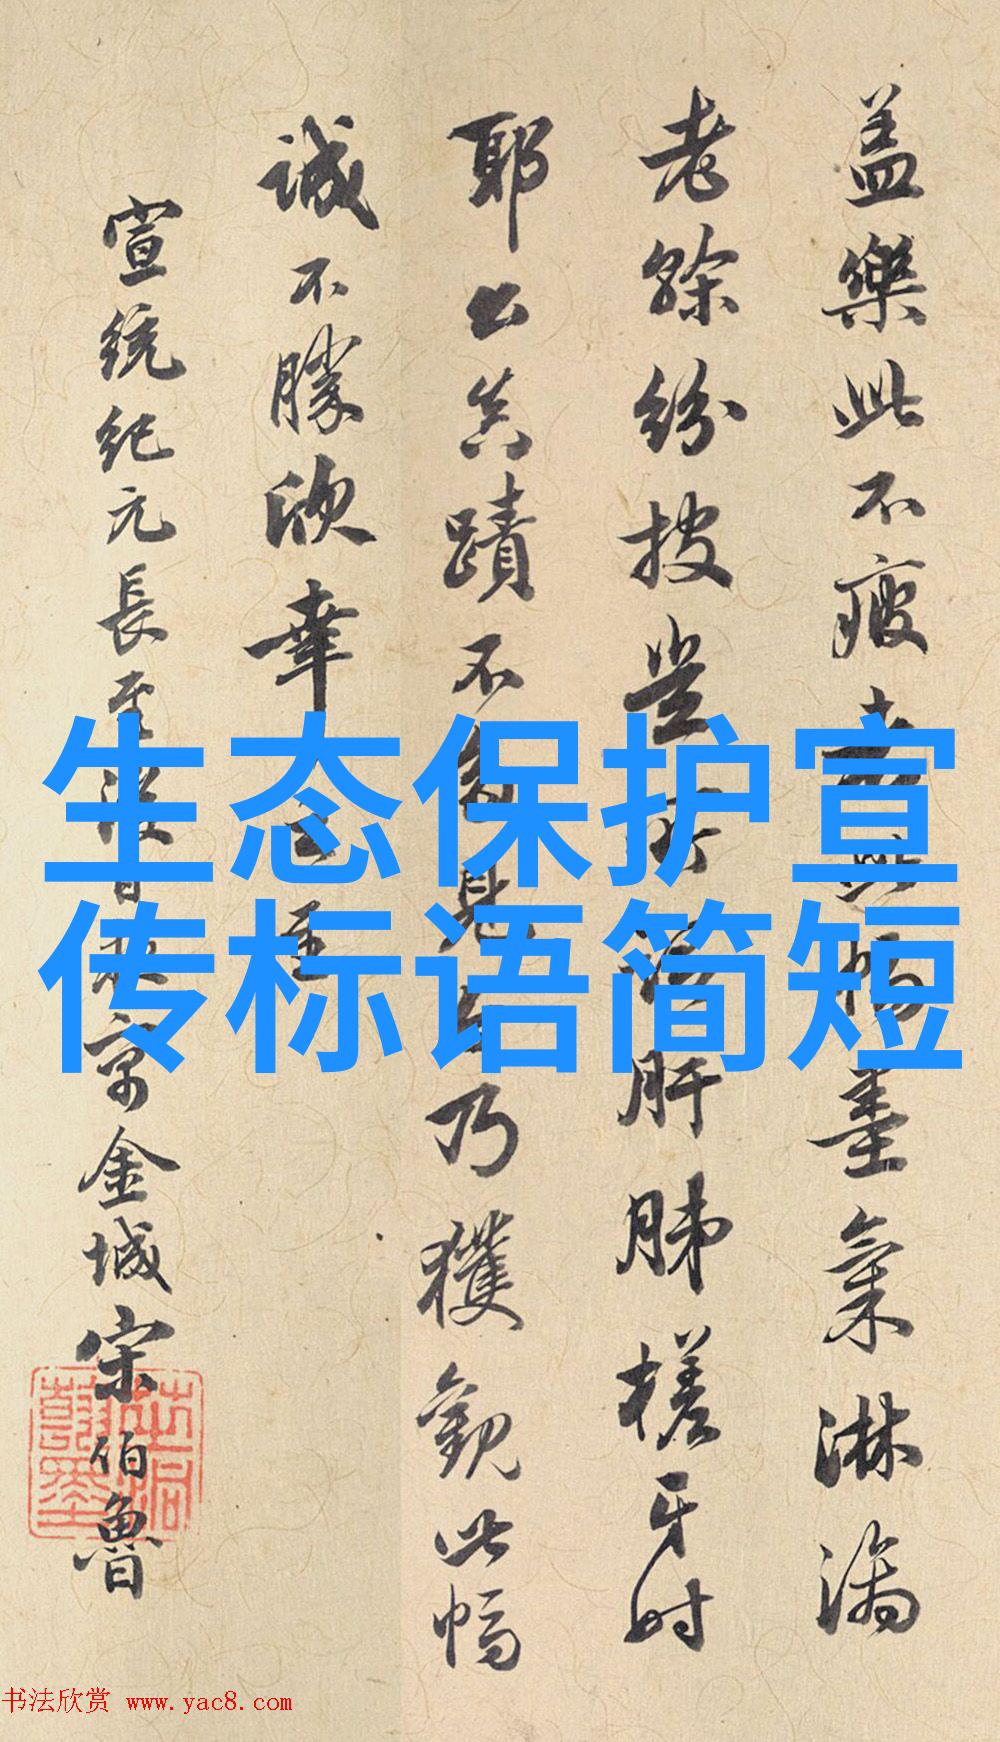 盖樂此不疲
墨氣淋漓
老餘紛披豈
肝胏槎牙时
耶公真蹟不
乃獲觀此幅
誠不勝欣幸
宣統纪元長至後
京金城宋伯魯
生态保护宣
传标语简短
书法欣赏 www.yac8.com